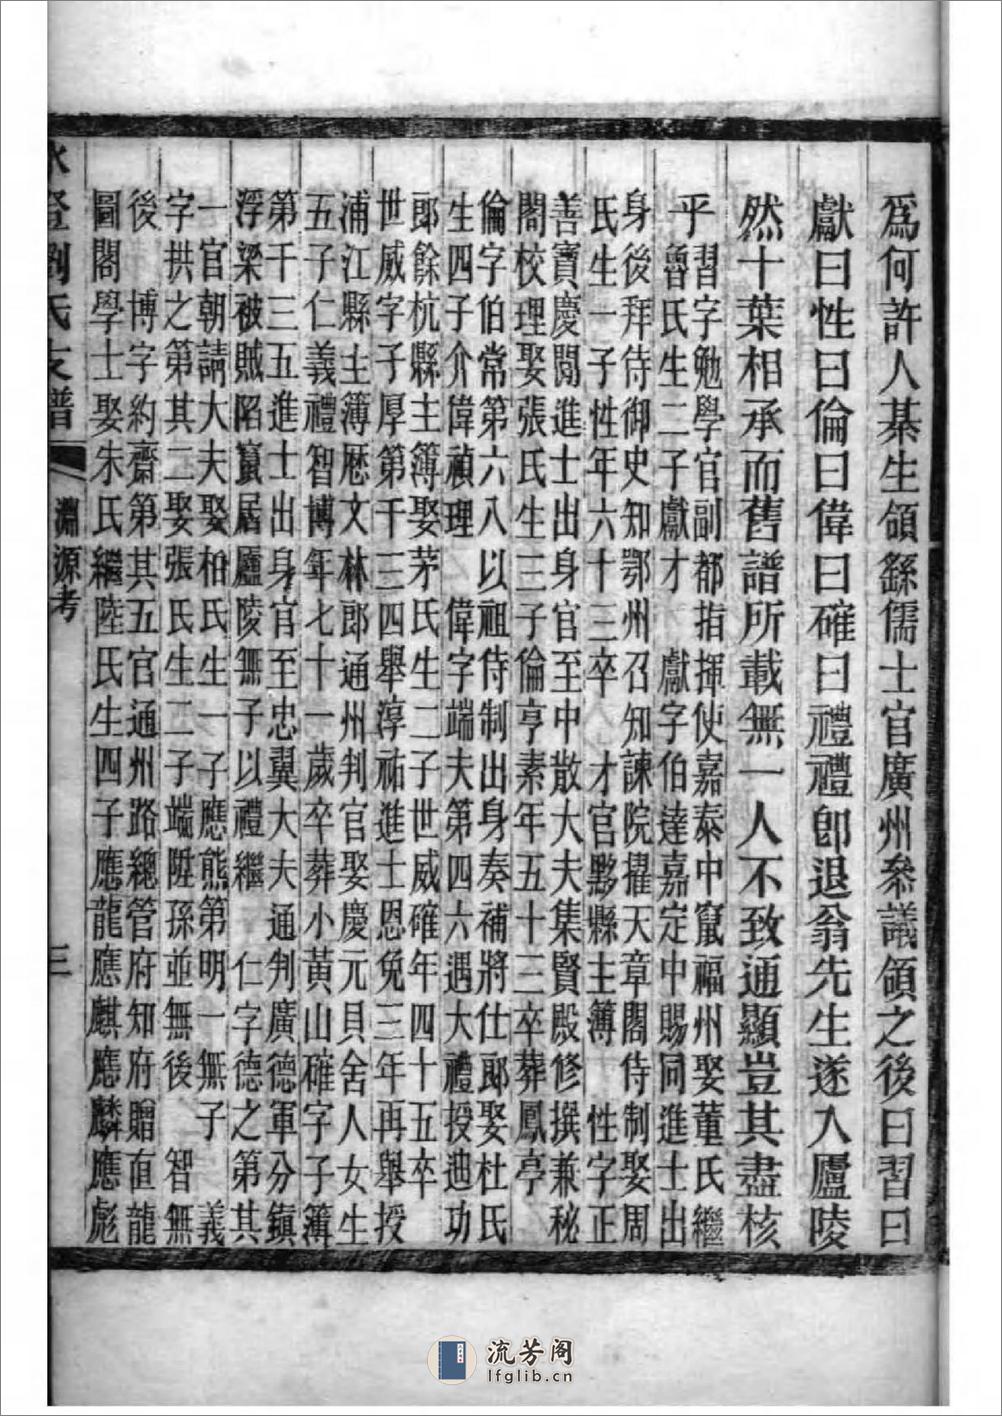 爲何許人綦生領繇儒士官廣州叅議領之後曰習曰
獻曰性曰倫曰偉曰確曰禮禮卽退翁先生遂入廬陵
然十葉相承而舊譜所載無一人不致通顯豈其盡核
乎
習字勉學官副都指揮使嘉泰中竄福州娶董氏繼
魯氏生二子獻才 獻字伯達嘉定中賜同進士出
身後拜侍御史知鄂州召知諫院擢天章閣侍制娶周
氏生一子性年六十三卒 才官黟縣主簿 性字正
善寶慶間進士出身官至中散大夫集賢殿修撰兼秘
閣校理娶張氏生三子倫亨素年五十三卒葬鳳亭
倫字伯常第六八以祖侍制出身奏補將仕郎娶杜氏
生四子介偉禎理 偉字端夫第四六遇大禮授迪功
郎餘杭縣主簿娶茅氏生二子世威確年四十五卒
世威字子厚第千三四舉淳祐進士恩免三年再舉授
浦江縣主簿歴文林郎通州判官娶慶元貝舍人女生
五子仁義禮智博年七十一歲卒葬小黃山確字子簿
第千三五進士出身官至忠翼大夫通判廣德軍分鎮
浮梁被賊陷竄居廬陵無子以禮繼 仁字德之第其
一官朝請大夫娶柏氏生一子應熊第明一無子 義
字拱之第其二娶張氏生二子端陞孫並無後 智無
後 博字約齋第其五官通州路總管府知府贈直龍
圖閣學士娶朱氏繼陸氏生四子應龍應麒應麟應彪
水澄劉氏支譜 淵源考 三
流芳阁
lfglib.cn